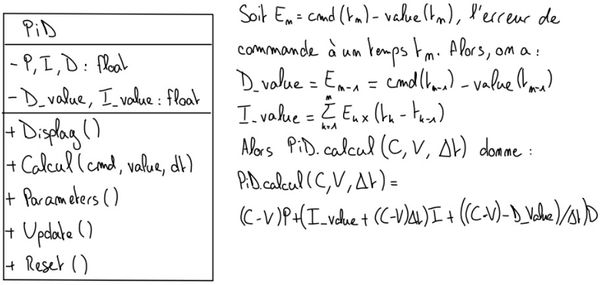 PiD
- P, I, D : float
- D_value, I_value : float
+ Display ()
+ Calcul (cmd, value, dt)
+ Parameters ()
+ Update ()
+ Reset ()
Soit Em = cmd (tm) - value (tm), l'erreur de
commande à un temps tm. Alors, on a :
D_value = Em-1 = cmd(tm-1) - value(tm-1)
I_value = m∑k=1 Ek × (tk - tk-1)
Alors PiD.calcul (C, V, Δt) donne :
PiD.calcul (C, V, Δt) =
(C-V)P + (I_value + (C-V)Δt)I + ((C-V) - D_Value)/Δt)D